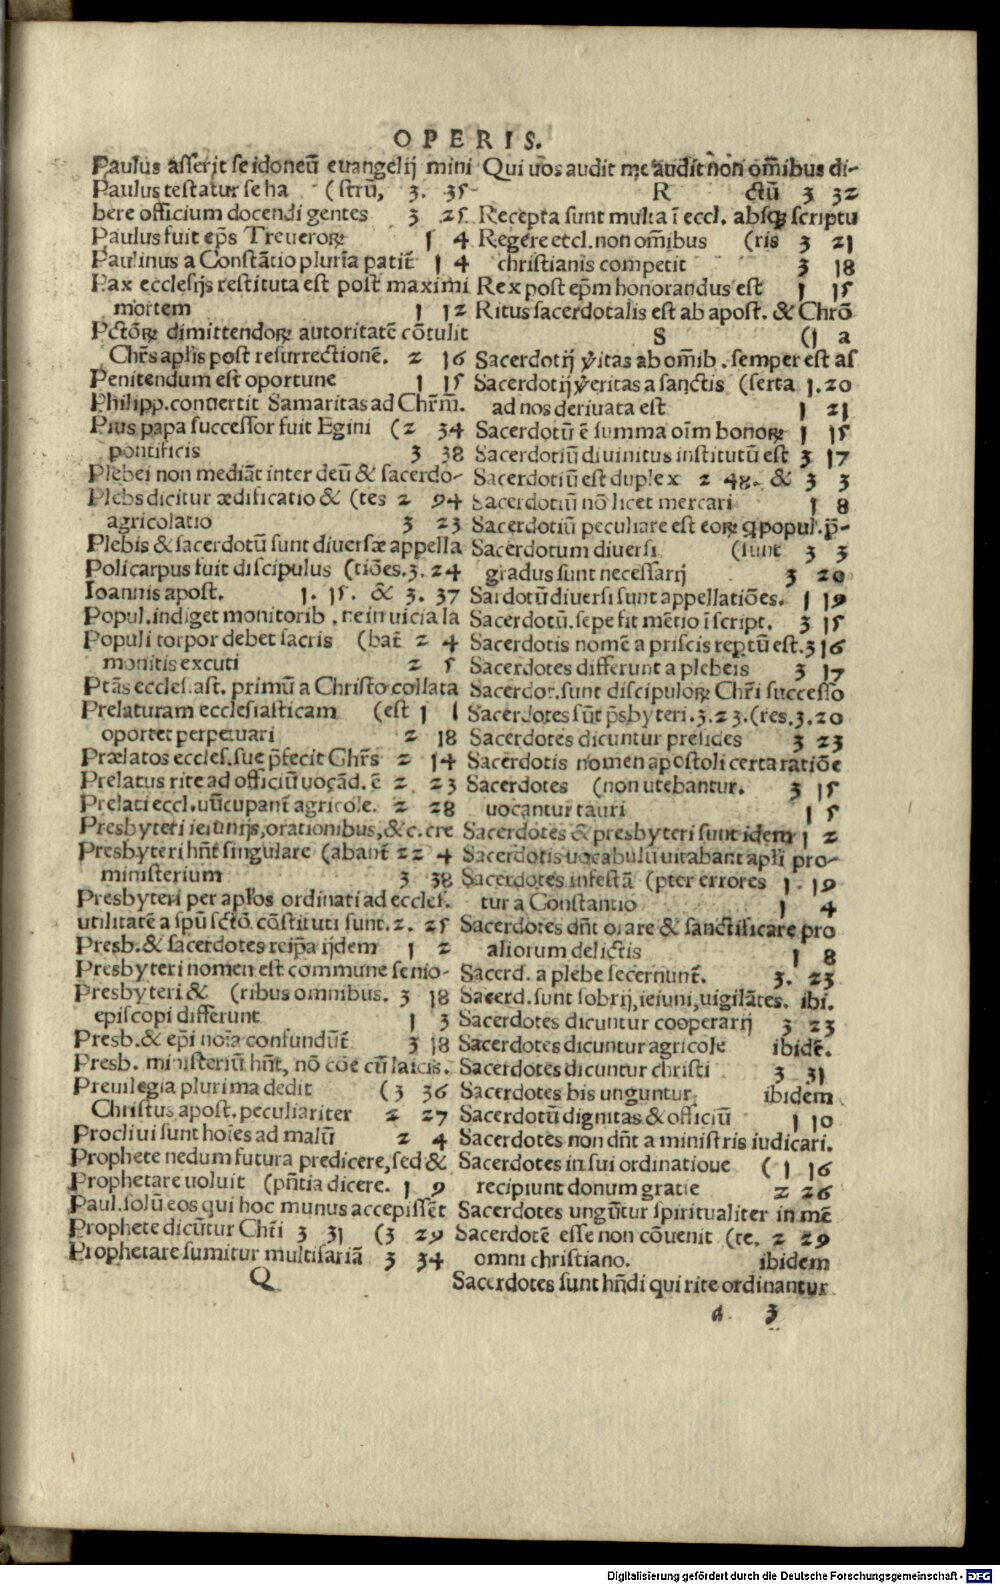 OPERIS.
Paulus asserit se idoneū euangelij mini
Paulus testatur se ha (strū, 3. 35
bere officium docendi gentes 3 25
Paulus fuit ep̄s Treuerorꝝ 1 4
Paulinus a Constātio plurīa patit̄ 1 4
Pax ecclesijs restituta est post maximi
mortem 1 12
Pctōrꝝ dimittendorꝝ autoritatē cōtulit
Chr̄s apl̄is post resurrectionē. 2 16
Penitendum est oportune 1 15
Philipp. conuertit Samaritas ad Chr̄m.
Pius papa successor fuit Egini (2 34
pontificis 3 38
Plebei non mediāt inter deū & sacerdo-
Plebs dicitur ædificatio & (tes 2 94
agricolatio 3 23
Plebis & sacerdotū sunt diuersæ appella
Policarpus fuit discipulus (tiōes. 3. 24
Ioannis apost. 1. 15. & 3. 37
Popul. indiget monitorib. ne in uicia la
Populi torpor debet sacris (bat̄ 2 4
monitis excuti 2 5
Ptās eccles. ast. primū a Christo collata
Prelaturam ecclesiasticam (est 1 1
oportet perpetuari 2 18
Prælatos eccles. sue p̄fecit Chr̄s 2 14
Prelatus rite ad officiū uocād. ē 2 23
Prelati eccl. nūcupant̄ agricole. 2 28
Presbyteri ieiunijs, orationibus, &c. cre
Presbyteri hn̄t singulare (abant̄ 22 4
ministerium 3 38
Presbyteri per apl̄os ordinati ad eccles.
utilitatē a spū sctō cōstituti sunt. 2. 25
Presb. & sacerdotes reip̄a ijdem 1 2
Presbyteri nomen est commune senio-
Presbyteri & (ribus omnibus. 3 18
episcopi differunt 1 3
Presb. & ep̄i noīa confundūt̄ 3 18
Presb. ministeriū hn̄t, nō cōe cū laicis.
Preuilegia plurima dedit (3 36
Christus apost. peculiariter 2 27
Procliui sunt hoīes ad malū 2 4
Prophete nedum futura predicere, sed &
Prophetare uoluit (pn̄tia dicere. 1 9
Paul. solū eos qui hoc munus accepissēt
Prophete dicūtur Chr̄i 3 31 (3 29
Prophetare sumitur multifariā 3 34
Q
Qui uos audit me audit non om̄ibus di-
R ctū 3 32
Recepta sunt multa ī eccl. absqꝫ scriptu
Regere eccl. non om̄ibus (ris 3 21
christianis competit 3 18
Rex post ep̄m honorandus est 1 15
Ritus sacerdotalis est ab apost. & Chrō
S (1 a
Sacerdotij v̄itas ab om̄ib. semper est as
Sacerdotij v̄eritas a sanctis (serta 1. 20
ad nos deriuata est 1 21
Sacerdotū ē summa oīm bonorꝝ 1 15
Sacerdotiū diuinitus institutū est 3 17
Sacerdotiū est duplex 2 48. & 3 3
Sacerdotiū nō licet mercari 1 8
Sacerdotiū peculiare est eorꝝ q popul. p̄-
Sacerdotum diuersi (sunt 3 3
gradus sunt necessarij 3 20
Sardotū diuersi sunt appellatiōes. 1 19
Sacerdotū. sepe fit mētio ī script. 3 15
Sacerdotis nomē a priscis reptū est. 3 16
Sacerdotes differunt a plebeis 3 17
Sacerdot. sunt discipulorꝝ Chr̄i successo
Sacerdotes sūt p̄sbyteri. 3. 23. (res. 3. 20
Sacerdotes dicuntur presides 3 23
Sacerdotis nomen apostoli certa ratiōe
Sacerdotes (non utebantur. 3 15
uocantur tauri 1 5
Sacerdotes & presbyteri sunt idem 1 2
Sacerdotis uocabulū uitabant apl̄i pro-
Sacerdotes infestā (pter errores 1. 19
tur a Constantio 1 4
Sacerdotes dn̄t orare & sanctificare pro
aliorum delictis 1 8
Sacerd. a plebe secernunt̄. 3. 23
Sacerd. sunt sobrij, ieiuni, uigilātes. ibi.
Sacerdotes dicuntur cooperarij 3 23
Sacerdotes dicuntur agricole ibidē.
Sacerdotes dicuntur christi 3 31
Sacerdotes bis unguntur ibidem
Sacerdotū dignitas & officiū 1 10
Sacerdotes non dn̄t a ministris iudicari.
Sacerdotes in sui ordinatioue (1 16
recipiunt donum gratie 2 26
Sacerdotes ungūtur spiritualiter in mē
Sacerdotē esse non cōuenit (te. 2 29
omni christiano. ibidem
Sacerdotes sunt hn̄di qui rite ordinantur
a 3
Digitalisierung gefördert durch die Deutsche Forschungsgemeinschaft - DFG